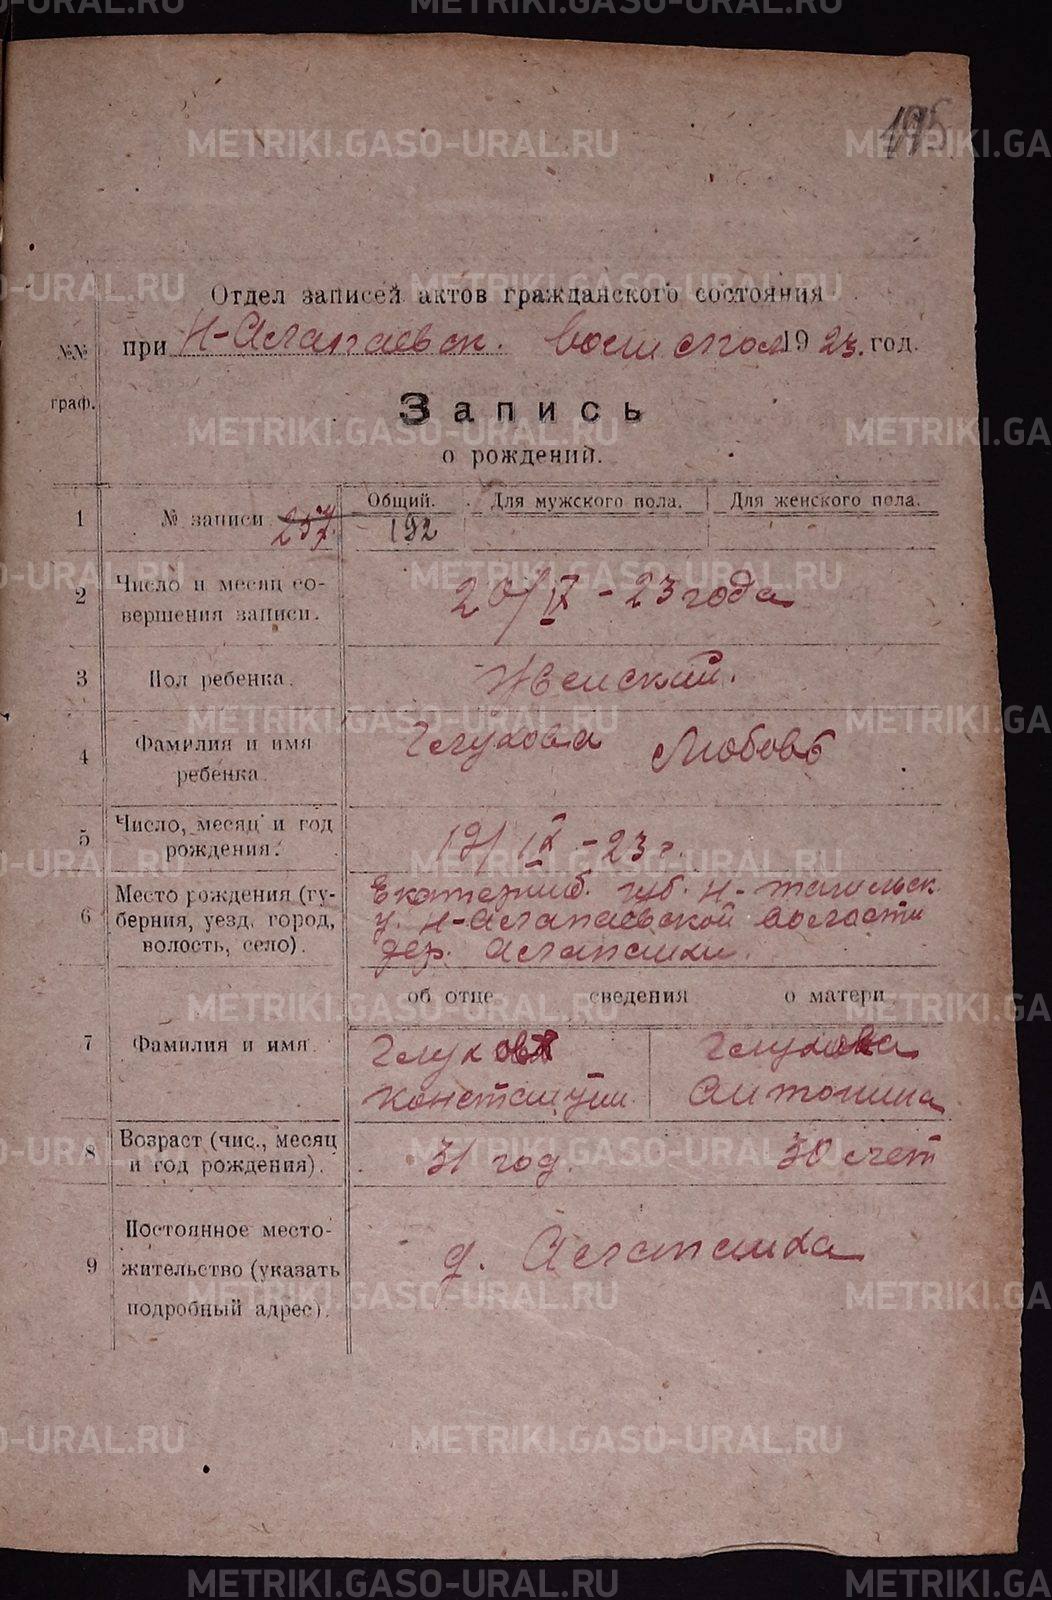 METRIKI.GASO-URAL.RU
195
Отдел записей актов гражданского состояния
при Н-Алапаевск. волисполк 1923 год.
№№ граф.
Запись
о рождений.
1 № записи 257. Общий. 192 Для мужского пола. Для женского пола.
2 Число и месяц совершения записи. 20/IX - 23 года
3 Пол ребенка. Женский.
4 Фамилия и имя ребенка. Глухова Любовь
5 Число, месяц и год рождения. 19/IX - 23 г.
6 Место рождения (губерния, уезд, город, волость, село). Екатеринб. губ. Н-Тагильск
у. Н-Алапаевской волости
дер. Алапаиха.
об отце сведения о матери
7 Фамилия и имя. Глухов Глухова
Константин Антонина
8 Возраст (чис., месяц и год рождения). 31 год. 30 лет
9 Постоянное местожительство (указать подробный адрес). д. Алапаиха